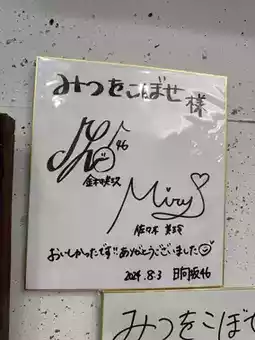 みつをこぼせ 様
46
金村美玖
Mireiy
佐々木 美玲
おいしかったです!!ありがとうございました
2024.8.3 日向坂46
みつをこぼせ